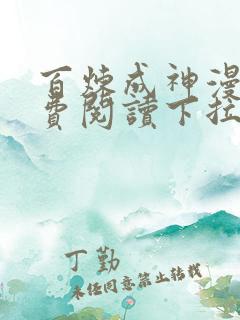 百炼成神漫
费阅讀下拉
丁勤
未经同意禁止转载